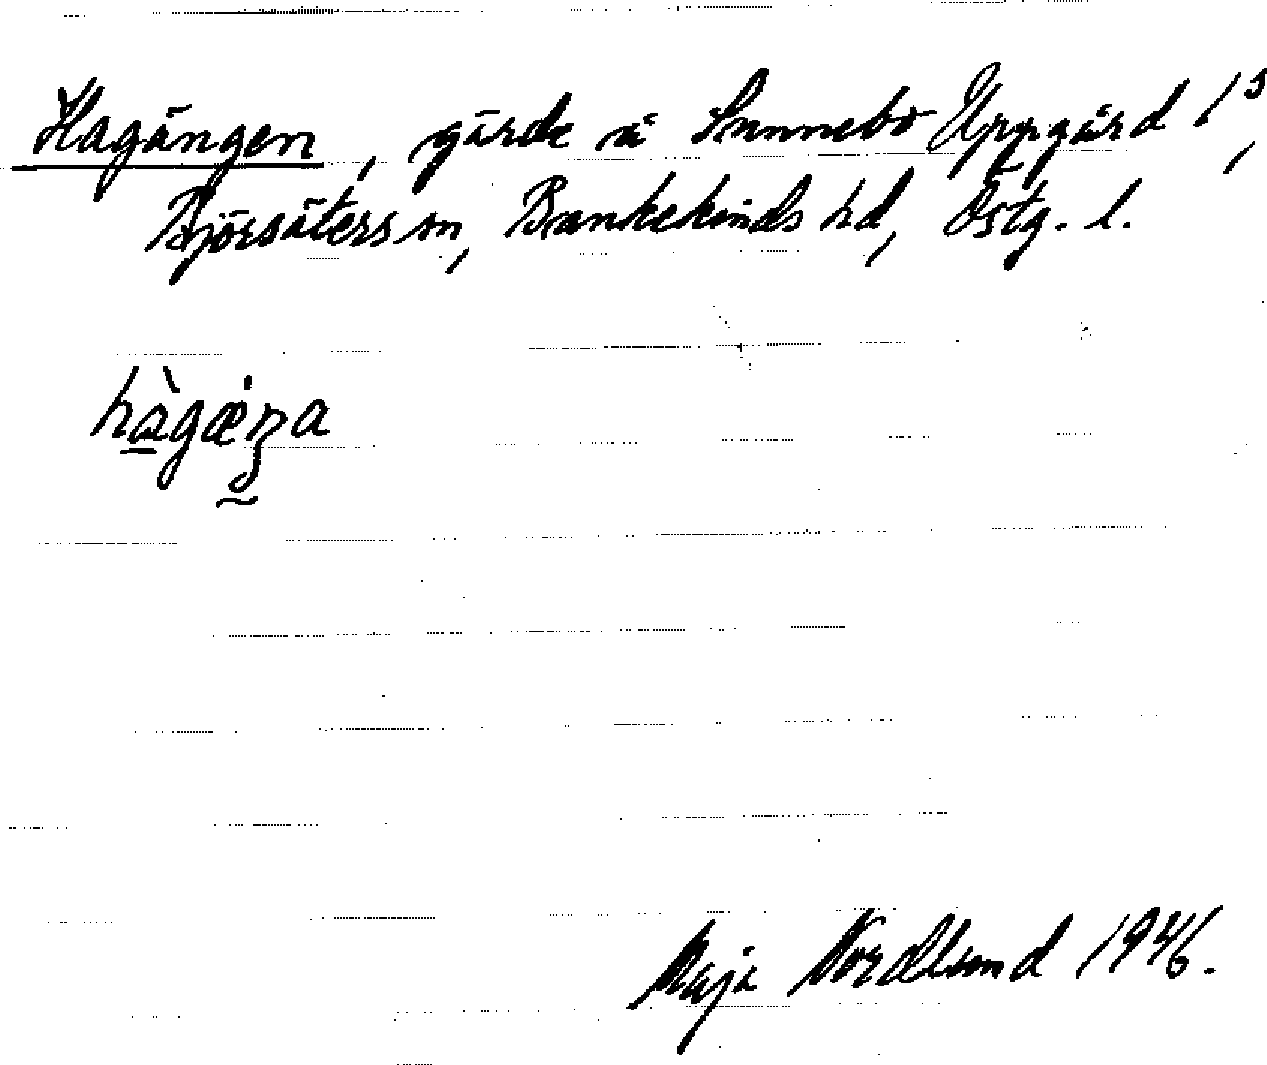 Hagängen, gärde å Sunnebo Uppgård 1³,
Björsäters sn, Bankekinds hd, Östg. l.
hàgæŋa
Maja Nordlund 1946.